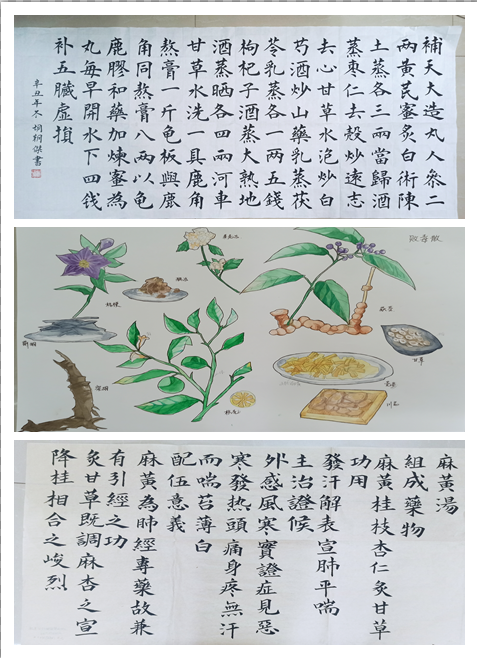 補天大造丸人參二
兩黃芪蜜炙白術陳
土蒸各三兩當歸酒
蒸棗仁去殼炒遠志
去心甘草水泡炒白
芍酒炒山藥乳蒸茯
苓乳蒸各一兩五錢
枸杞子酒蒸大熟地
酒蒸晒各四兩河車
甘草水洗一具鹿角
熬膏一斤龟板與鹿
角同熬膏八兩以龟
鹿膠和藥加煉蜜為
丸每早開水下四钱
补五臟虛損
辛丑年冬
敗毒散
桔梗
茯苓
甘草
川芎
麻黃湯
組成藥物
麻黃桂枝杏仁炙甘草
功用
發汗解表宣肺平喘
主治證候
外感風寒實證症見惡
寒發热頭痛身疼無汗
而喘苔薄白
配伍意義
麻黃為肺經專藥故兼
有引經之功
炙甘草既調麻杏之宣
降桂相合之峻烈